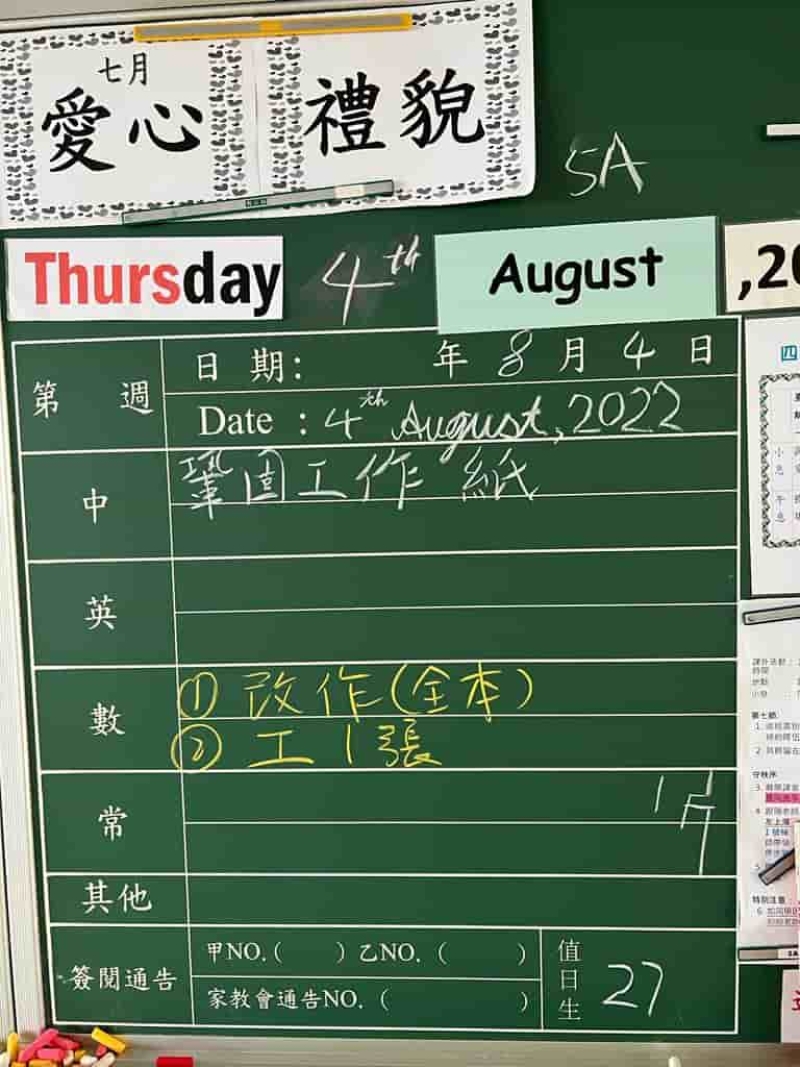 七月
愛心 禮貌
5A
Thursday 4th August ,20
第 週 日 期: 年 8 月 4 日
Date : 4th August, 2022
中 鞏固工作紙
英
數 ① 改作(全本)
② 工 1 張
常
其他
簽閱通告 甲NO.( ) 乙NO.( )
家教會通告NO.( )
值日生 27
四
第七節:
守秩序
特別注意: